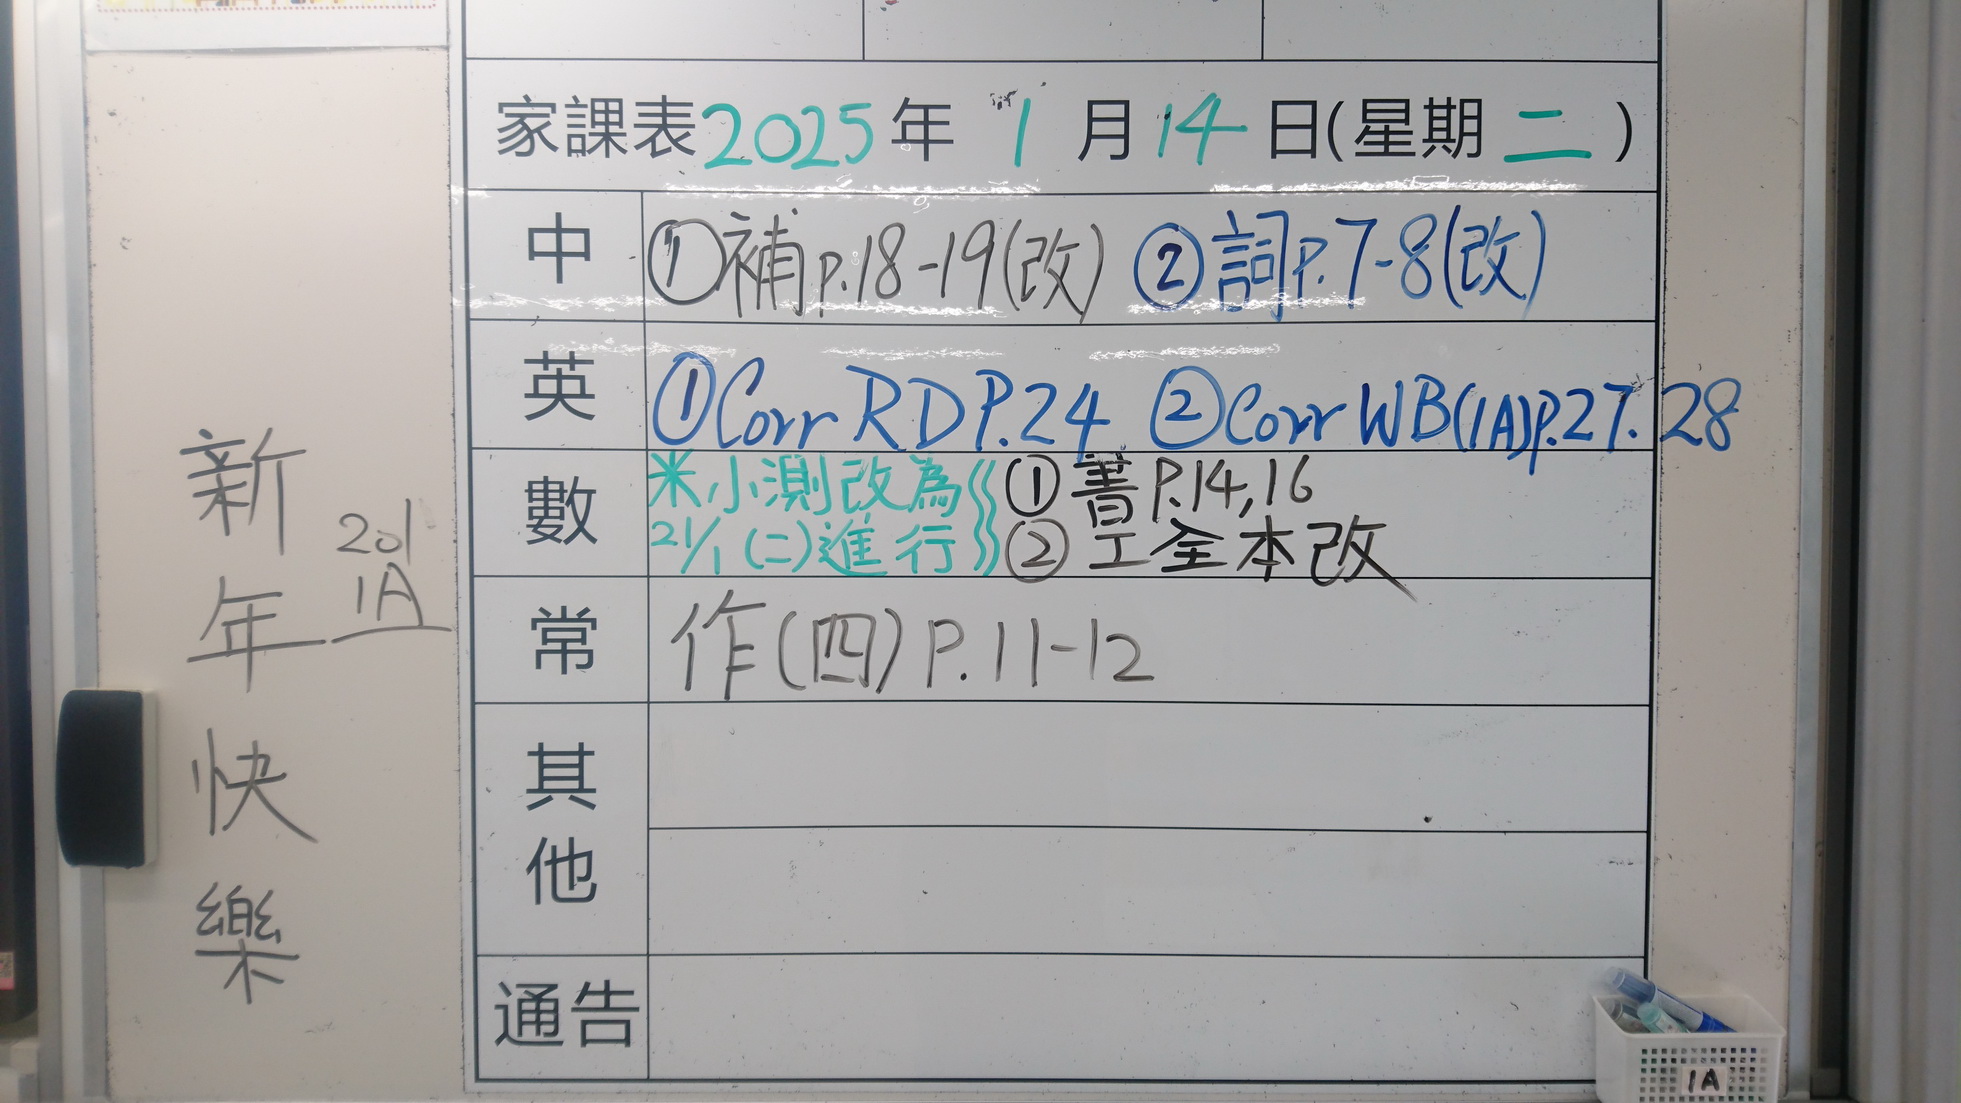 家課表2025年 1 月14日(星期二)
中 ①補p.18-19(改) ②詞P.7-8(改)
英 ①Corr RD P.24 ②Corr WB(1A)p.27.28
數 米小測改為 ①書P.14,16
21/1(二)進行 ②工全本改
常 作(四)P.11-12
其他
通告
新年快樂
201
1A
1A